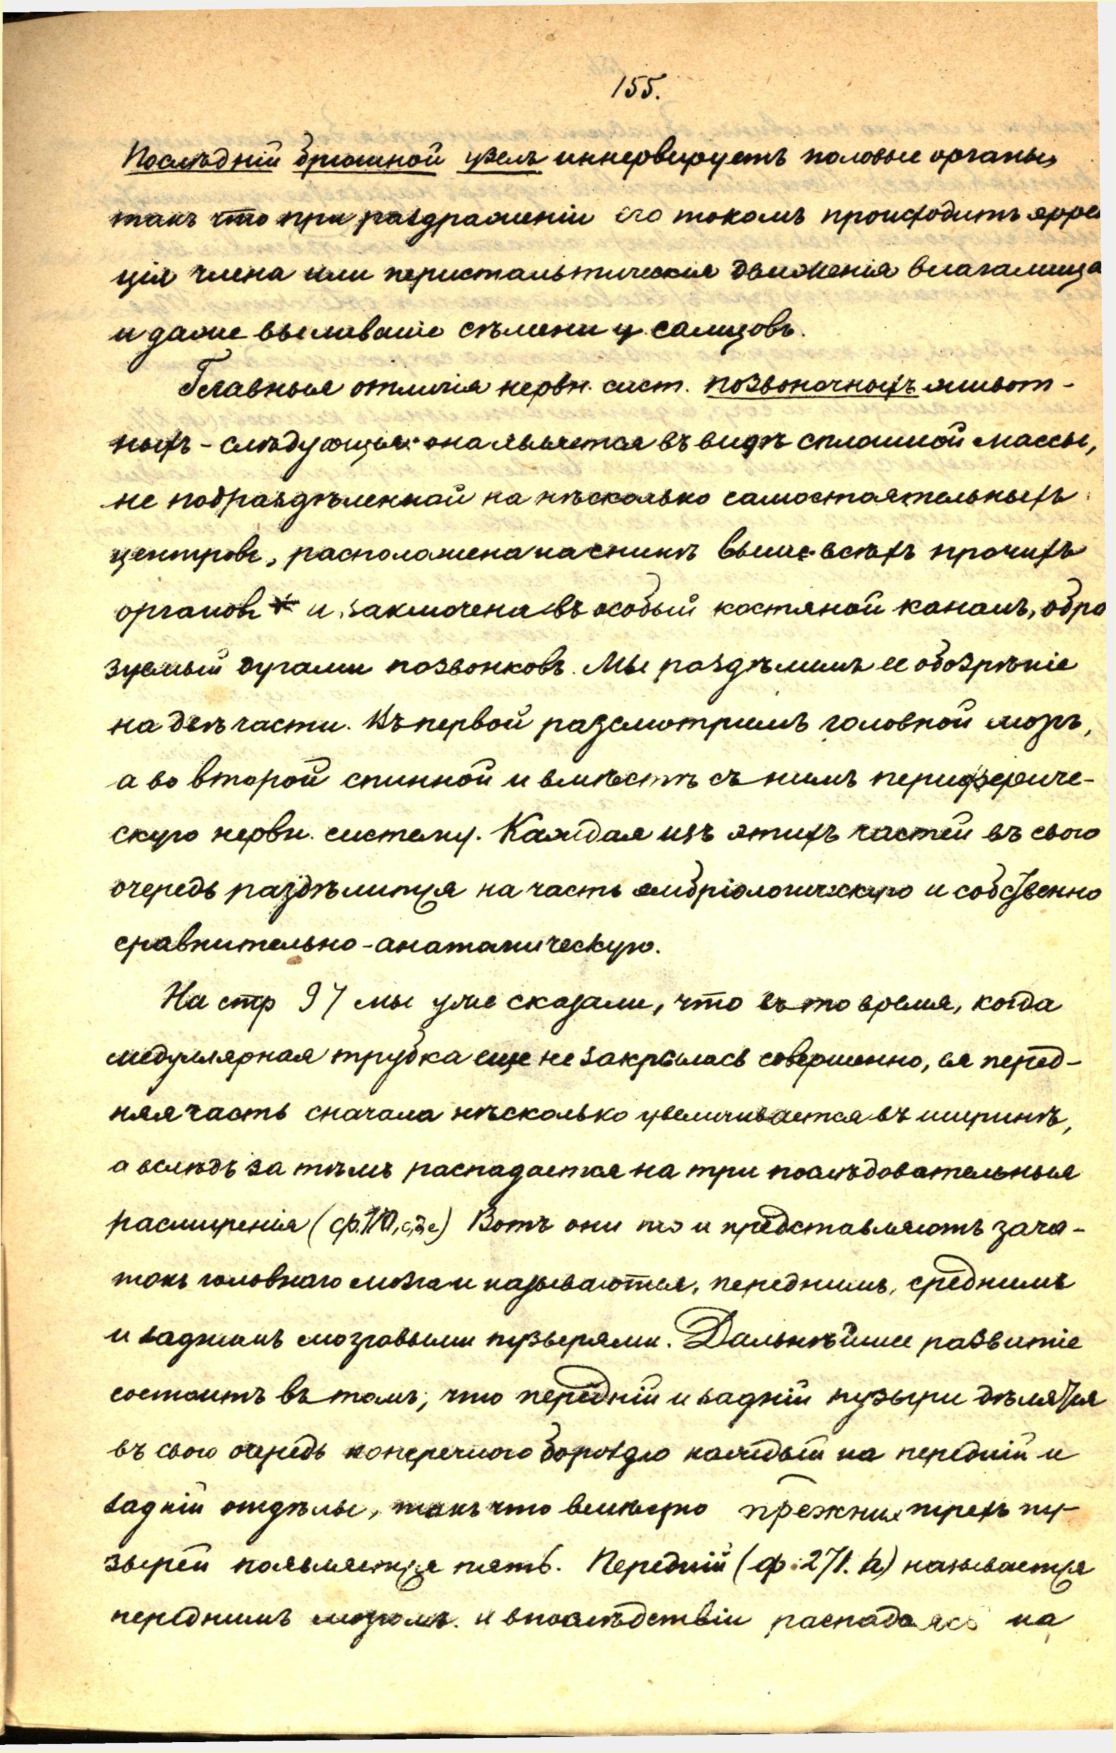 155.
Послѣднiй брюшной узелъ иннервируетъ половые органы,
такъ что при раздраженiи его токомъ происходитъ эррек
цiя члена или перистальтическiя движенiя влагалища
и даже выливанiе сѣмени у самцовъ.
Главныя отличiя нервн. сист. позвоночныхъ живот-
ныхъ - слѣдующiя: она является въ видѣ сплошной массы,
не подраздѣленной на нѣсколько самостоятельныхъ
центровъ, расположена на спинѣ выше всѣхъ прочихъ
органовъ и заключена въ особый костяной каналъ, обра
зуемый дугами позвонковъ. Мы раздѣлимъ ее обозрѣнiе
на двѣ части. Въ первой разсмотримъ головной мозгъ,
а во второй спинной и вмѣстѣ съ нимъ перифериче-
скую нервн. систему. Каждая изъ этихъ частей въ свою
очередь раздѣлится на часть эмбрiологическую и собственно
сравнительно-анатомическую.
На стр 97 мы уже сказали, что въ то время, когда
медуллярная трубка еще не закрылась совершенно, ея перед-
няя часть сначала нѣсколько увеличивается въ ширинѣ,
а вслѣдъ за тѣмъ распадается на три послѣдовательныя
расширенiя Вотъ они то и представляютъ зача-
токъ головнаго мозга и называются, переднимъ, среднимъ
и заднимъ мозговыми пузырями. Дальнѣйшее развитiе
состоитъ въ томъ, что переднiй и заднiй пузыри дѣлятся
въ свою очередь поперечною бороздою каждый на переднiй и
заднiй отдѣлы, такъ что вмѣсто прежних трехъ пу-
зырей появляется пять. Переднiй (ф. 271. h) называется
переднимъ мозгомъ. и впослѣдствiи распадаясь на